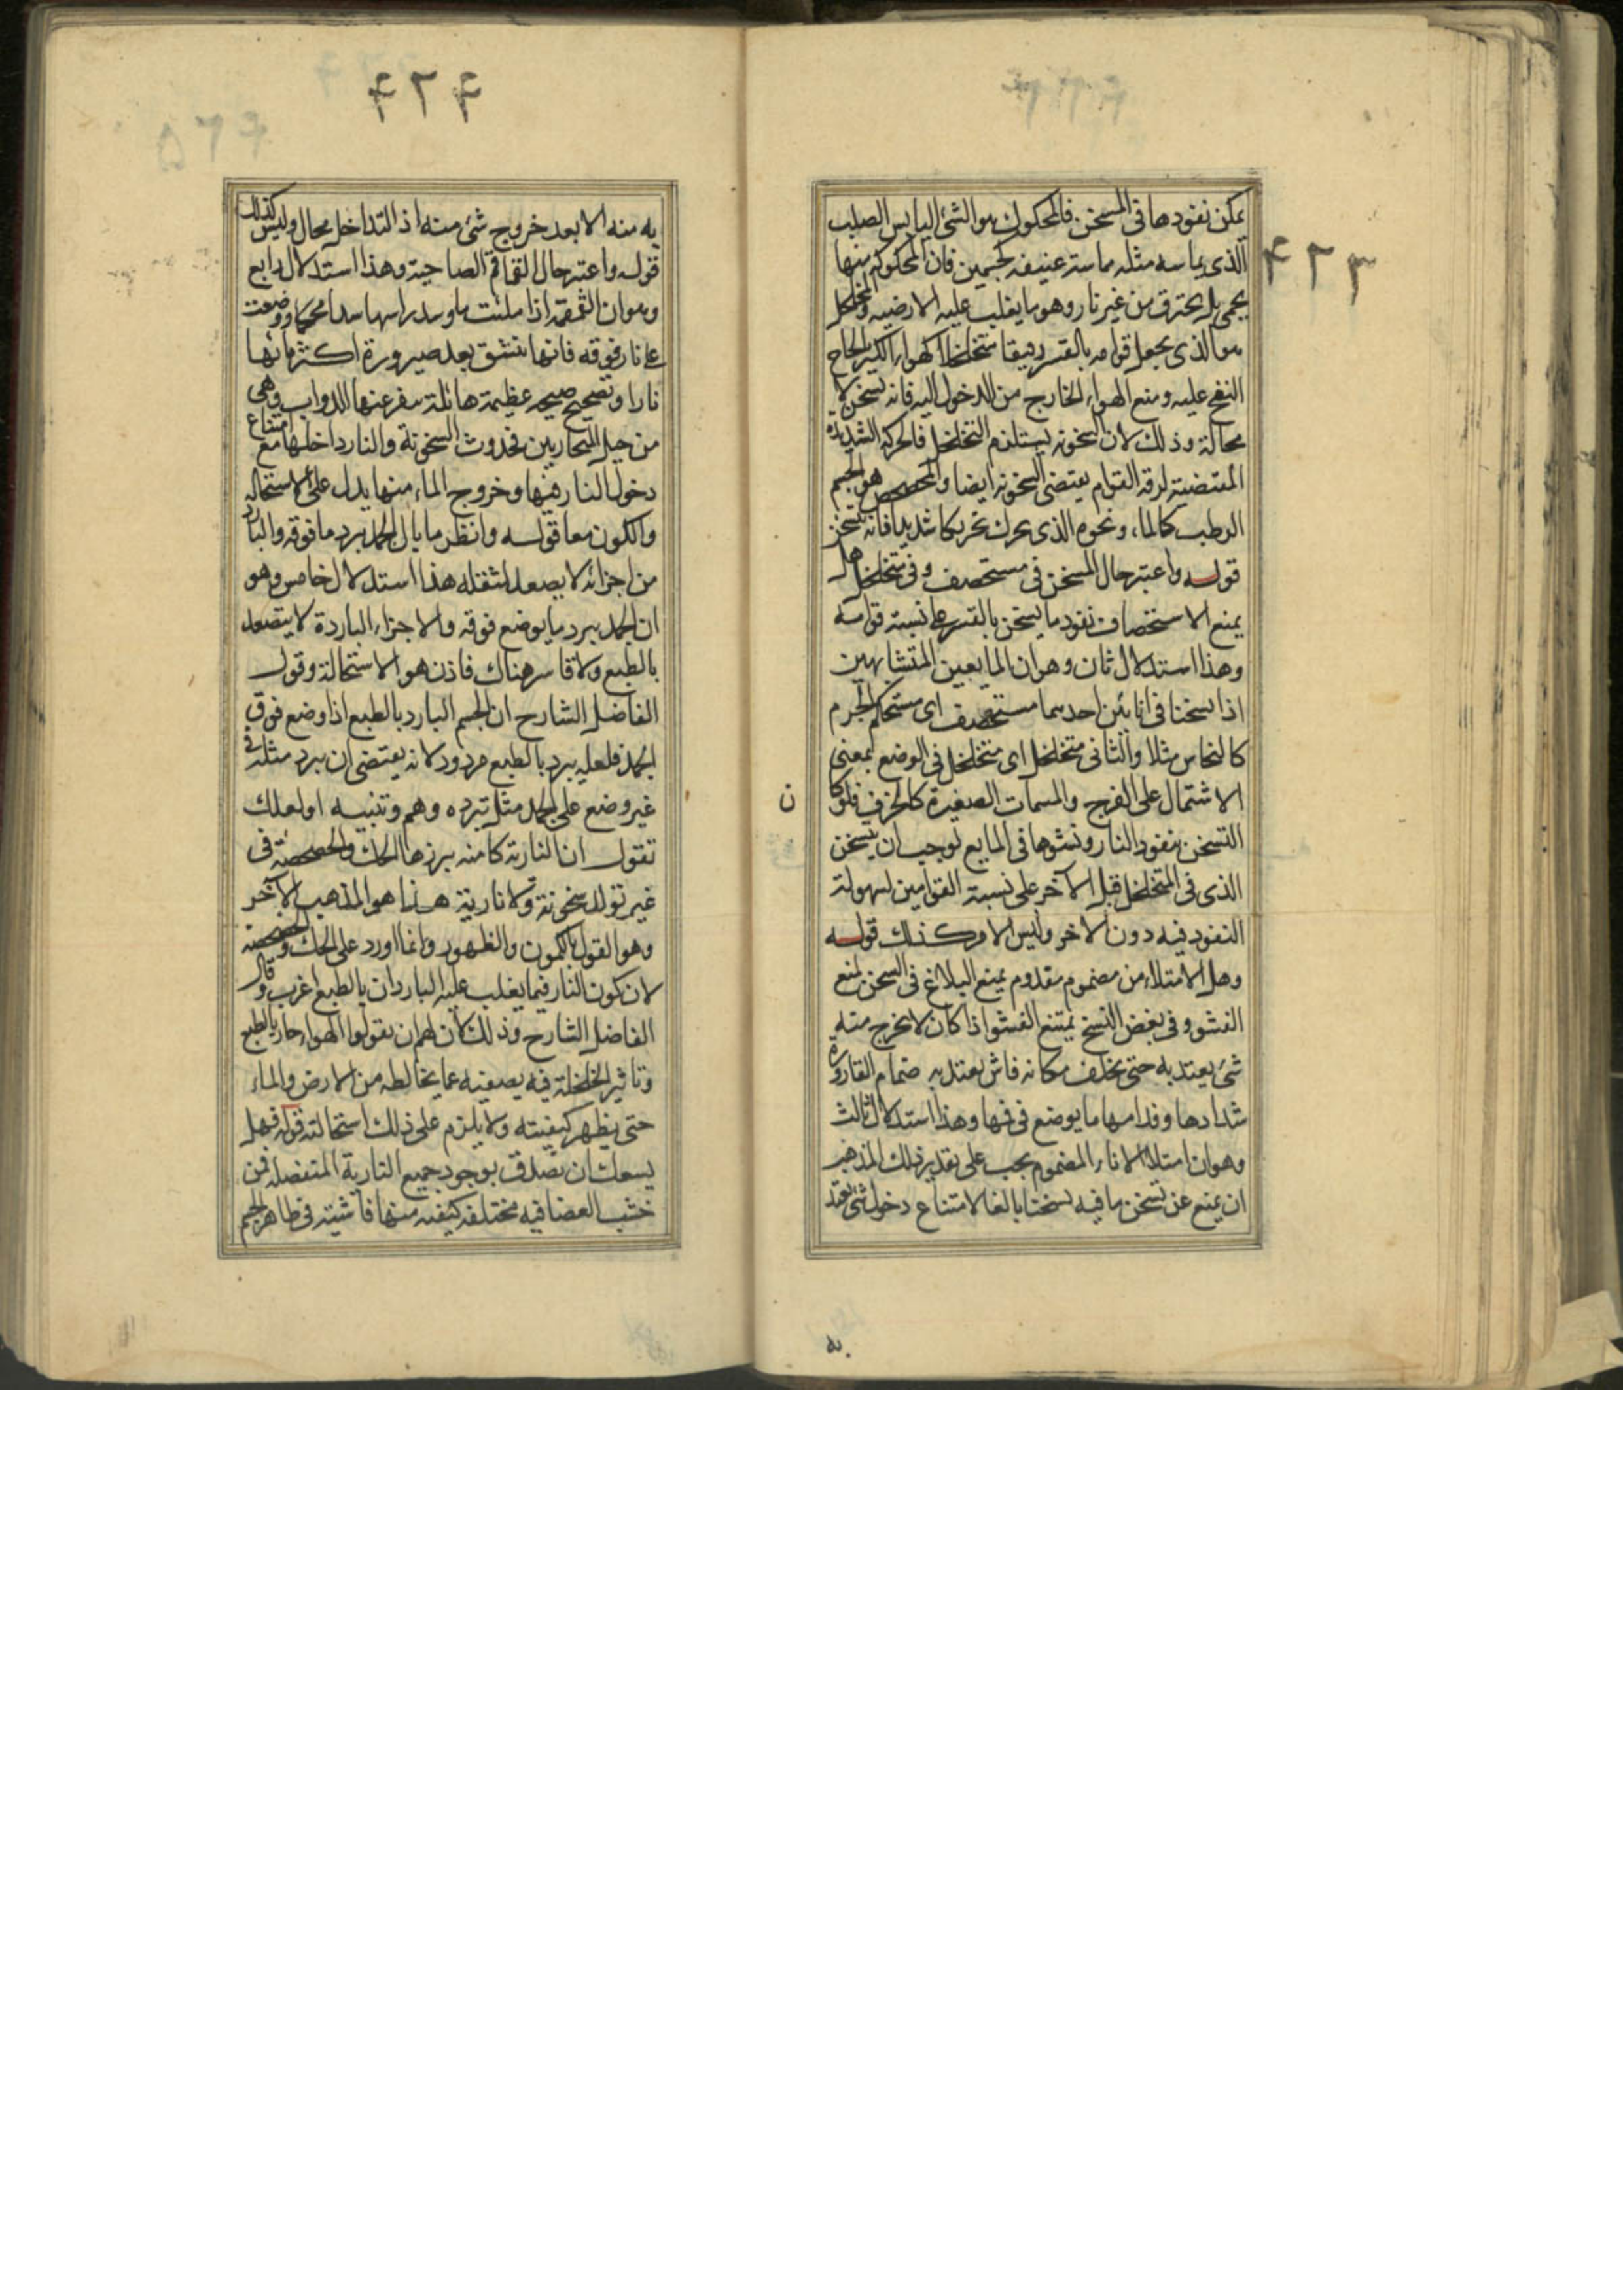 ٤٢٣
يمكن نفوذها فى المسخن فالمحكوك هو الشئ اليابس الصلب
الذى يماسه مثله مماسة عنيفه كجسمين فان المحكوك منها
يحمى بل يحترق من غير نار وهو ما يغلب عليه الارضيه والمخلخل
هو الذى يجعل قوامه بالقسر رقيقا متخلخلا كهواء الكير بالحاح
النفخ عليه ومنع الهواء الخارج من الدخول اليه فانه يسخن لا
محالة وذلك لان السخونه يستلزم التخلخل فالحركه الشديدة
المقتضية لرقة القوام يقتضى السخونه ايضا والمخضخض هو الجسم
الرطب كالماء ونحوه الذى يحرك تحريكا شديدا فانه يتسخن
قوله واعتبر حال المسخن فى مستحصف وفى متخلخل هل
يمنع الاستحصاف نفوذ ما يسخن بالقسر على نسبة قوامه
وهذا استدلال ثان وهو ان المايعين المتشابهين
اذا سخنا فى انائين احدهما مستحصف اى مستحكم الجرم
كالنحاس مثلا والثانى متخلخل اى متخلخل فى الوضع بمعنى
الاشتمال على الفرج والمسامات الصغيرة كالخزف فلو كا
ن
التسخن بنفوذ النار وفشوها فى المايع لوجب ان يسخن
الذى فى المتخلخل قبل الآخر على نسبة القوامين لسهولة
النفوذ فيه دون الاخر وليس الامر كذلك قوله
وهل الامتلاء من مصموم مفدوم يمنع البلاغ فى السخن لمنع
الفشو وفى بعض النسخ يمتنع الفشو اذا كان لا يخرج منه
شئ يعتد به حتى يخلف مكانه فاش يعتد به صمام القارورة
شدادها وفدامها ما يوضع فى فمها وهذا استدلال ثالث
وهو ان امتلاء الاناء المصموم يجب على تقدير ذلك المذهب
ان يمنع عن تسخن ما فيه تسخنا بالغا لامتناع دخول شئ يعتد
به
٤٢٤
به منه الا بعد خروج شئ منه اذ التداخل محال وليس كذلك
قوله واعتبر حال القماقم الصياحية وهذا استدلال رابع
وهو ان القمقمة اذا ملئت ماء وسد راسها سدا محكما ووضعت
على نار فوقه فانها تنشق بعد صيرورة اكثر مائها
نارا وتصيح صيحه عظيمة هائلة ينفر عنها الدواب وهى
من حيل المحاربين فحدوث السخونة والنار داخلها مع امتناع
دخول النار فيها وخروج الماء منها يدل على الاستحاله
والكون معا قوله وانظر ما بال الجمد يبرد ما فوقه والبارد
من اجزائه لا يصعد لثقله هذا استدلال خامس وهو
ان الجمد يبرد ما يوضع فوقه والاجزاء الباردة لا يتصعد
بالطبع ولا قاسر هناك فاذن هو الاستحالة وقول
الفاضل الشارح ان الجسم البارد بالطبع اذا وضع فوق
الجمد فلعله يبرد بالطبع مردود لانه يقتضى ان يبرد مثله فى
غير وضع على الجمد مثل تبرده وهم وتنبيه او لعلك
تقول ان النارية كامنه يبرزها الحك والخضخضة فى
غير تولد سخونة ولا نارية هذا هو المذهب الآخر
وهو القول بالكمون والظهور وانما اورد على الحك والخضخضة
لان كون النار فيما يغلب عليه الباردان بالطبع اغرب وقال
الفاضل الشارح وذلك لان لهم ان يقولوا الهواء حار بالطبع
وتاثير الخلخلة فيه يصفيه عما يخالطه من الارض والماء
حتى يظهر كيفيته ولا يلزم على ذلك استحالته قوله فهل
يسعك ان تصدق بوجود جميع النارية المنفصله عن
خشب الغضا فيه مختلفه كيفيه منها فاشية فى ظاهر الجسم